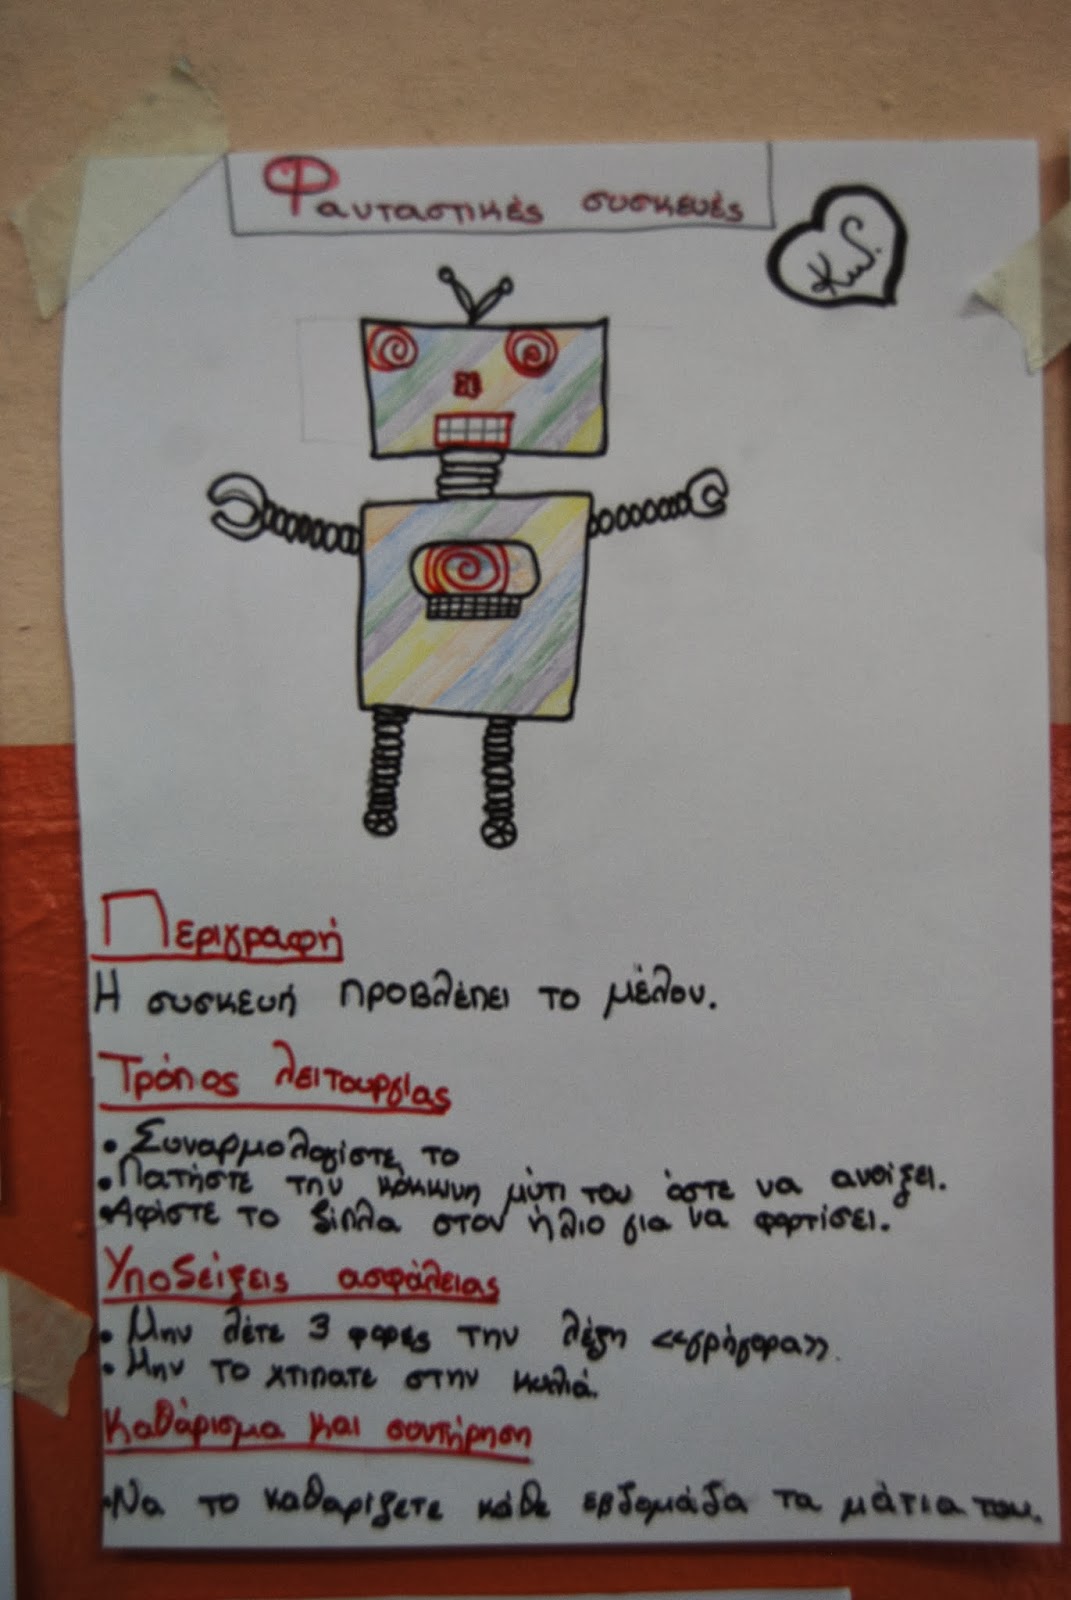 Φανταστικές συσκευές
Κω.
Περιγραφή
Η συσκευή προβλέπει το μέλου.
Τρόπος λειτουργίας
• Συναρμολογίστε το
• Πατήστε την κόκκινη μύτι του όστε να ανοίξει.
• Αφίστε το δίπλα στον ήλιο για να φορτίσει.
Υποδείξεις ασφάλειας
• Μην λέτε 3 φορές την λέξη <<γρήγορα>>.
• Μην το χτιπατε στην κιλιά.
Καθάρισμα και συντήρηση
• Να το καθαρίζετε κάθε εβδομάδα τα μάτια του.